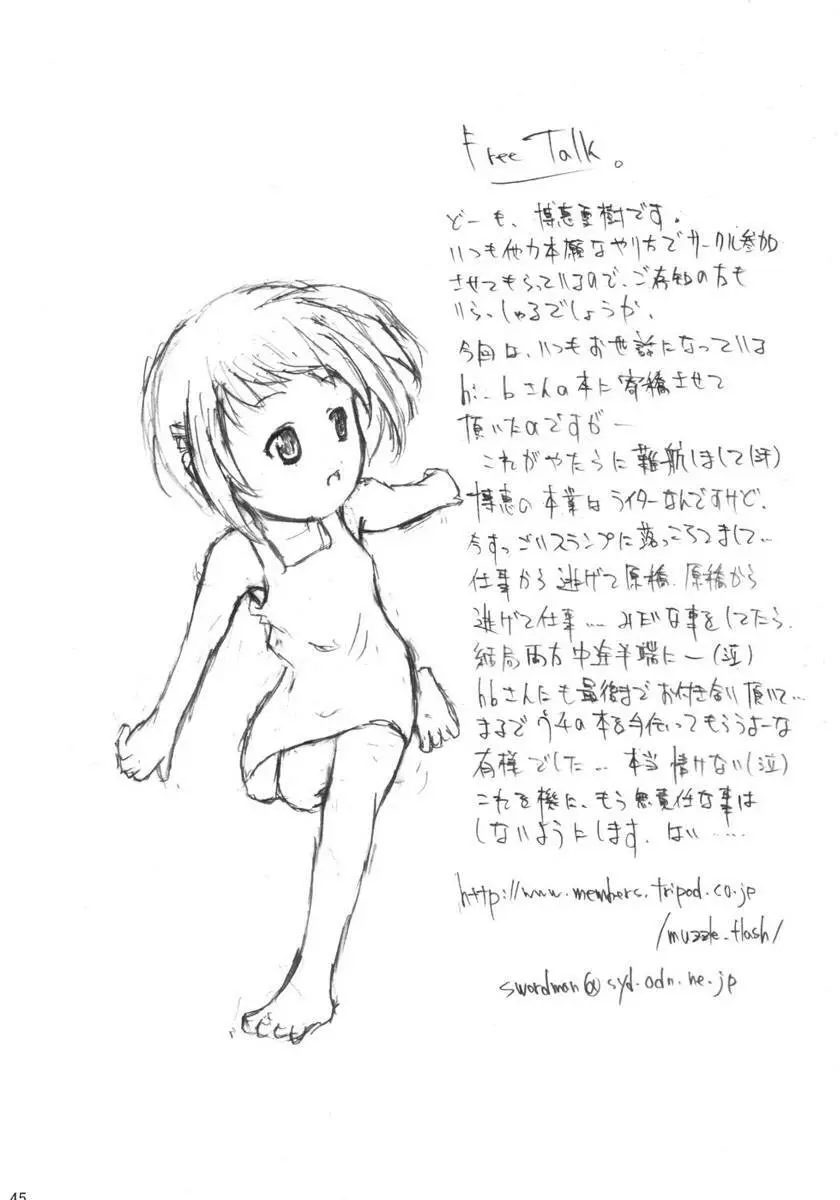 Free Talk。
どーも、博恵亜樹です。
いつも他力本願なやり方でサークル参加
させてもらっているので、ご存知の方も
いらっしゃるでしょうか。
今回は、いつもお世話になっている
さんの本に寄稿させて
頂いたのですがー
これがやたらに難航しまして(汗)
博恵の本業はライターなんですけど、
今すっごいスランプに落っこちてまして…
仕事から逃げて原稿、原稿から
逃げて仕事……みたいな事をしてたら、
結局両方中途半端にー(泣)
さんにも最後までお付き合い頂いて…
まるでウチの本を手伝ってもらうよーな
有様でした…本当情けない(泣)
これを機に、もう無責任な事は
しないようにします、はい……
http://www.members.tripod.co.jp
/muzzle_flash/
swordman@syd.odn.ne.jp
45